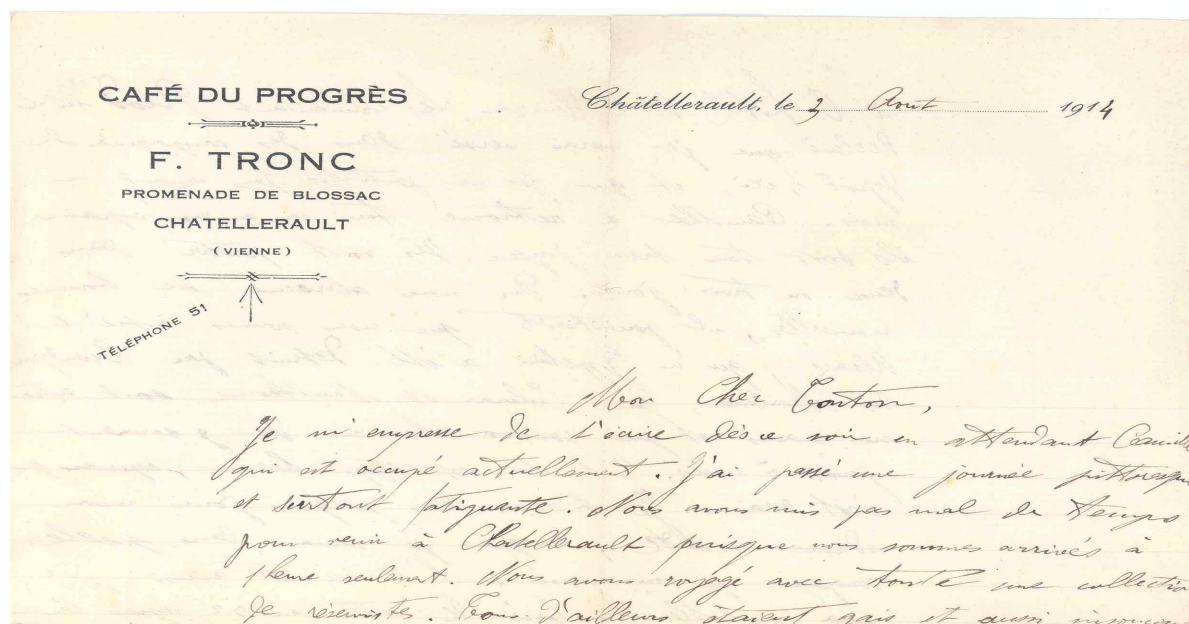 CAFÉ DU PROGRÈS
F. TRONC
PROMENADE DE BLOSSAC
CHATELLERAULT
(VIENNE)
TÉLÉPHONE 51
Châtellerault, le 3 Aout 1914
Mon Cher Tonton,
Je m'empresse de t'écrire dès ce soir en attendant Camille
qui est occupé actuellement. J'ai passé une journée pittoresque
et surtout fatiguante. Nous avons mis pas mal de temps
pour venir à Chatellerault puisque nous sommes arrivés à
1 heure seulement. Nous avons voyagé avec toute une collection
de réservistes. Tous d'ailleurs étaient gais et aussi